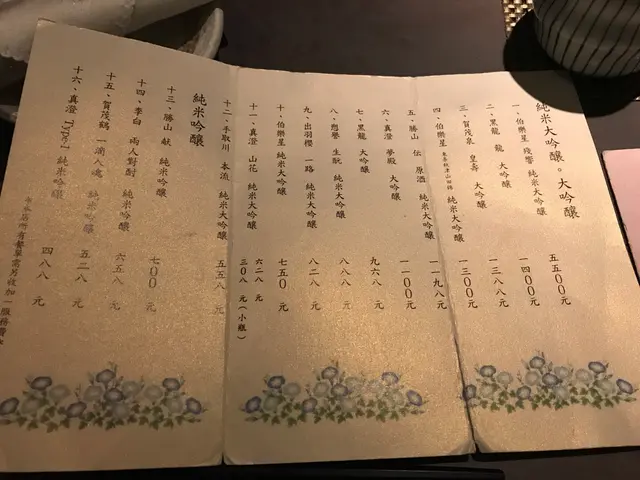 純米大吟醸。大吟醸
一、伯樂星 殘響 純米大吟釀 五五00元
二、黑龍 龍 大吟釀 一四00元
三、賀茂泉 皇壽 大吟釀 一三八八元
四、伯樂星 純米大吟釀 一三00元
五、勝山 伝 原酒 純米大吟釀 一一九八元
六、真澄 夢殿 大吟釀 一一00元
七、黑龍 大吟釀 九六八元
八、 生酛 純米大吟釀 八八八元
九、出羽櫻 一路 純米大吟釀 八二八元
十、伯樂星 純米大吟釀 七五0元
十一、真澄 山花 純米大吟釀 六二八元
三0八元(小瓶)
十二、手取川 本流 純米大吟釀 五五八元
純米吟釀
十三、勝山 献 純米吟釀 七00元
十四、李白 兩人對酌 純米吟釀 六五八元
十五、賀茂鶴 一滴入魂 純米吟釀 五二八元
十六、真澄 Type-1 純米吟釀 四八八元
本店所有餐單需另收加一服務費